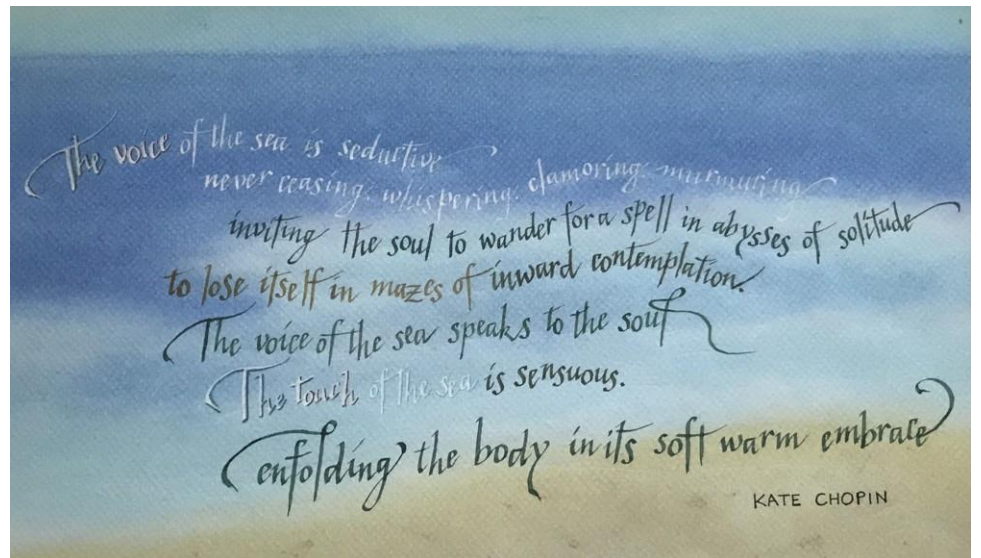 The voice of the sea is seductive
never ceasing. whispering. clamoring. murmuring
inviting the soul to wander for a spell in abysses of solitude
to lose itself in mazes of inward contemplation.
The voice of the sea speaks to the soul
The touch of the sea is sensuous.
enfolding the body in its soft warm embrace
KATE CHOPIN